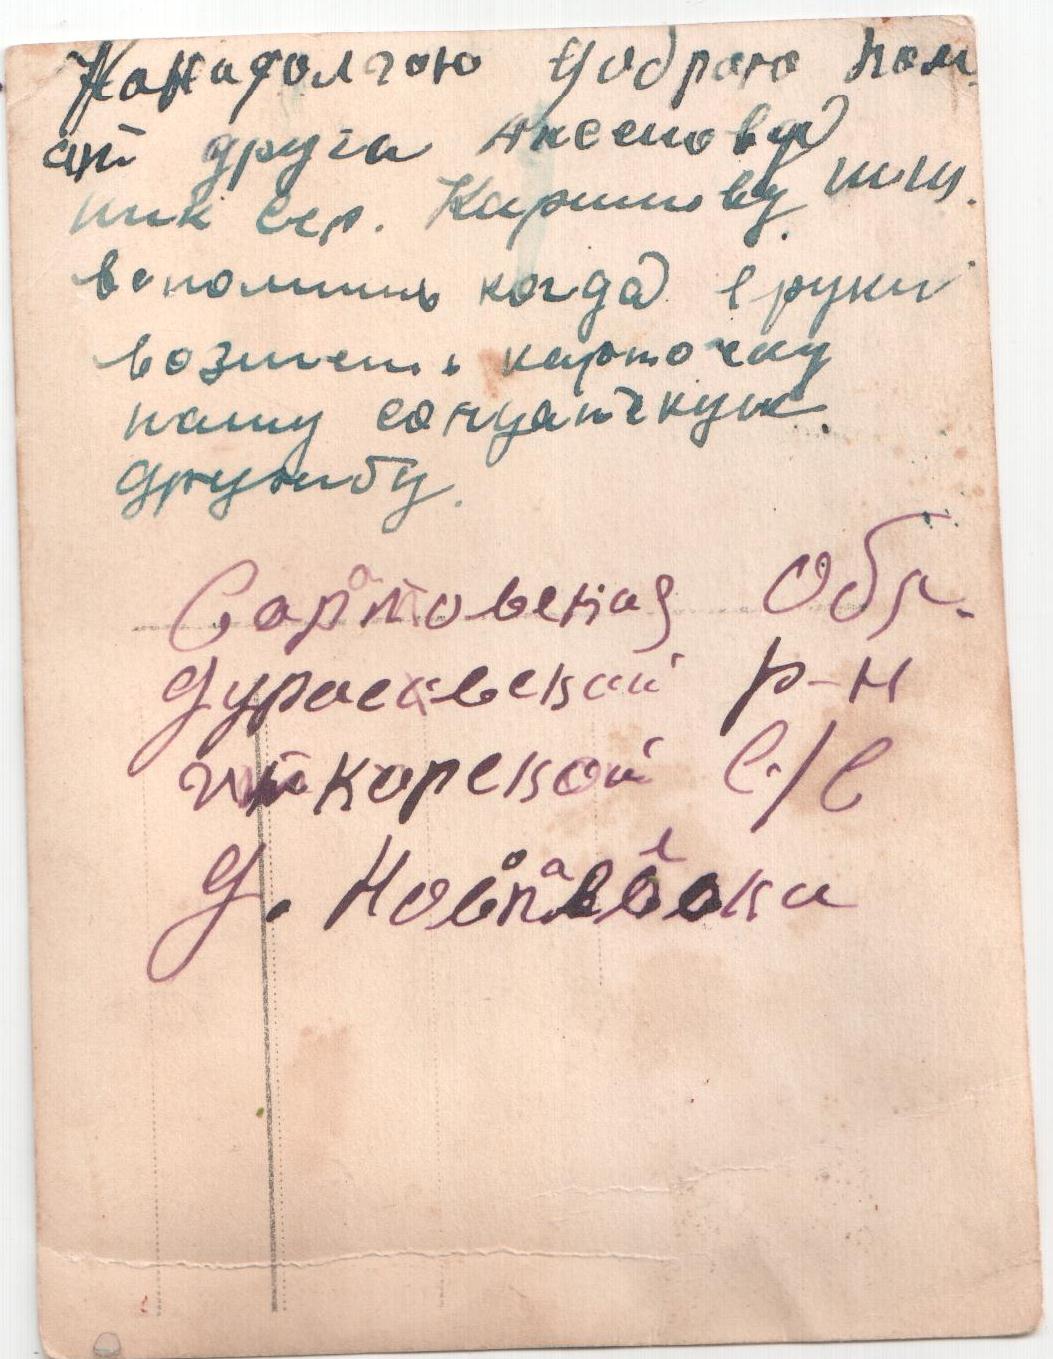 Нанадолгою добрую пам
ять друга Аксенова
ник сер. Каримову ш.ш.
вспомниш когда в руки
возмеш карточку
нашу солдатскую
дружбу.
Саратовская Обл.
дурасовской р-н
c/c
д. Новопавловка